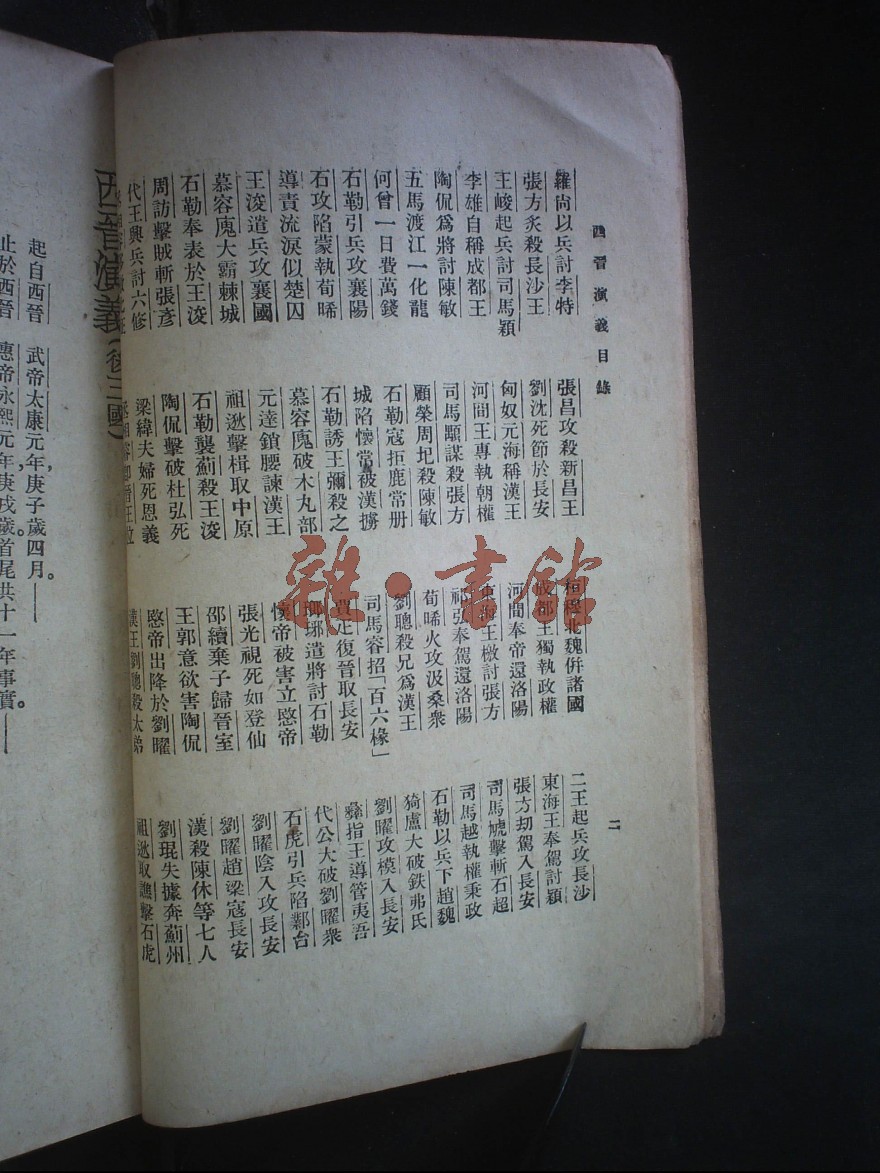 西晉演義目錄
二
羅尚以兵討李特
張昌攻殺新昌王
桓穆北魏併諸國
二王起兵攻長沙
張方炙殺長沙王
劉沈死節於長安
成都王獨執政權
東海王奉駕討穎
王峻起兵討司馬穎
匈奴元海稱漢王
河間奉帝還洛陽
張方刧駕入長安
李雄自稱成都王
河間王專執朝權
東海王檄討張方
司馬虓擊斬石超
陶侃爲將討陳敏
司馬顒謀殺張方
祁弘奉駕還洛陽
司馬越執權秉政
五馬渡江一化龍
顧榮周玘殺陳敏
荀晞火攻汲桑衆
石勒以兵下趙魏
何曾一日費萬錢
石勒寇拒鹿常册
劉聰殺兄爲漢王
猗盧大破鉄弗氏
石勒引兵攻襄陽
城陷懷帝被漢擄
司馬容招「百六椽」
劉曜攻模入長安
石攻陷蒙執荀晞
石勒誘王彌殺之
賈疋復晉取長安
彝指王導管夷吾
導責流淚似楚囚
慕容廆破木丸部
瑯琊遣將討石勒
代公大破劉曜衆
王浚遣兵攻襄國
元達鎖腰諫漢王
懷帝被害立愍帝
石虎引兵陷鄴台
慕容廆大霸棘城
祖逖擊楫取中原
張光視死如登仙
劉曜陰入攻長安
石勒奉表於王浚
石勒襲薊殺王浚
邵續棄子歸晉室
劉曜趙梁寇長安
周訪擊賊斬張彥
陶侃擊破杜弘死
王郭意欲害陶侃
漢殺陳休等七人
代王興兵討六修
梁緯夫婦死恩義
愍帝出降於劉曜
劉琨失據奔薊州
漢王劉聰殺太弟
祖逖取譙擊石虎
西晉演義(後三國)
起自西晉 武帝太康元年,庚子歲四月。——
止於西晉 惠帝永熙元年,庚戌歲。首尾共十一年事實。——
雜·書館